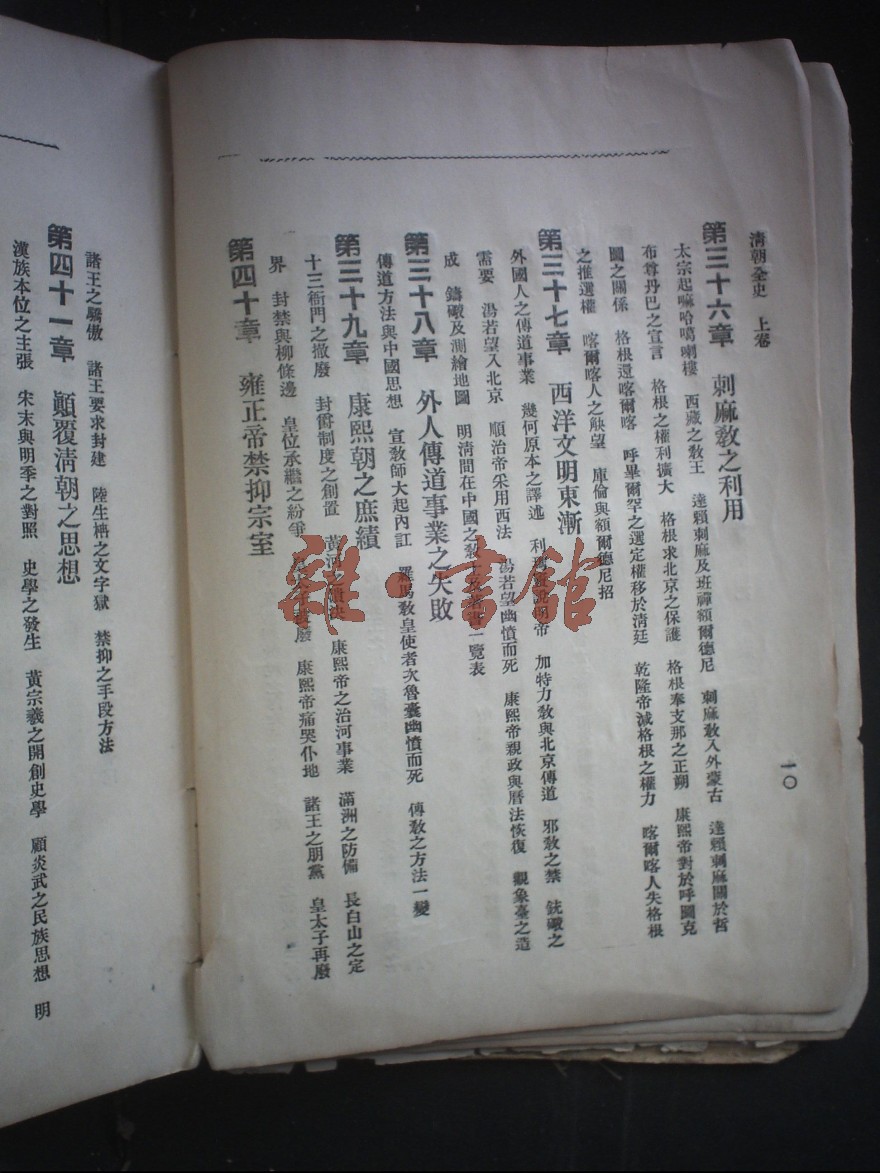 清朝全史　上卷
一〇
第三十六章　刺麻敎之利用
太宗起嘛哈噶喇樓　西藏之敎王　達賴刺麻及班禪額爾德尼　刺麻敎入外蒙古　達賴刺麻關於哲
布尊丹巴之宣言　格根之權利擴大　格根求北京之保護　格根奉支那之正朔　康熙帝對於呼圖克
圖之關係　格根還喀爾喀　呼畢爾罕之選定權移於清廷　乾隆帝減格根之權力　喀爾喀人失格根
之推選權　喀爾喀人之觖望　庫倫與額爾德尼招
第三十七章　西洋文明東漸
外國人之傳道事業　幾何原本之譯述　利瑪竇說明帝　加特力敎與北京傳道　邪敎之禁　銃礮之
需要　湯若望入北京　順治帝采用西法　湯若望幽憤而死　康熙帝親政與曆法恢復　觀象臺之造
成　鑄礮及測繪地圖　明清間在中國之敎士及著書一覽表
第三十八章　外人傳道事業之失敗
傳道方法與中國思想　宣敎師大起內訌　羅馬敎皇使者次魯囊幽憤而死　傳敎之方法一變
第三十九章　康熙朝之庶績
十三衙門之撤廢　封爵制度之創置　黃河之潰決　康熙帝之治河事業　滿洲之防備　長白山之定
界　封禁與柳條邊　皇位承繼之紛爭　皇太子之廢　康熙帝痛哭仆地　諸王之朋黨　皇太子再廢
第四十章　雍正帝禁抑宗室
諸王之驕傲　諸王要求封建　陸生柟之文字獄　禁抑之手段方法
第四十一章　顚覆淸朝之思想
漢族本位之主張　宋末與明季之對照　史學之發生　黃宗羲之開創史學　顧炎武之民族思想　明
雜·書館